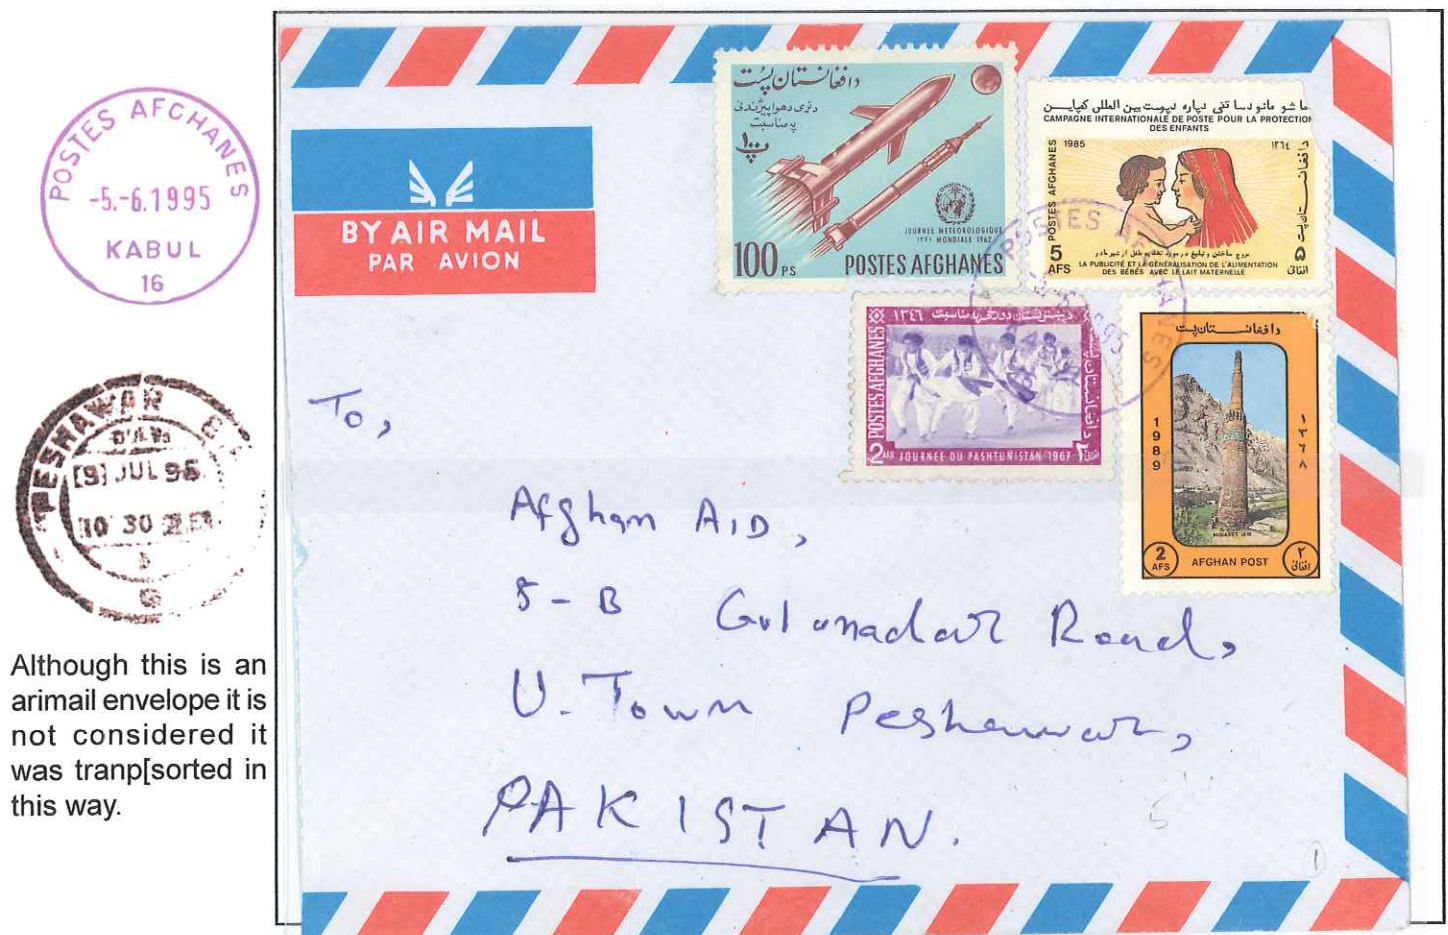 POSTES AFGHANES
-5.-6.1995
KABUL
16
PESHAWAR
[9] JUL 95
10 30
Although this is an
arimail envelope it is
not considered it
was tranp[sorted in
this way.
BY AIR MAIL
PAR AVION
د افغانستان پست
په مناسبت
JOURNEE METEOROLOGIQUE
١٣٤١ MONDIALE 1962
100 PS POSTES AFGHANES
CAMPAGNE INTERNATIONALE DE POSTE POUR LA PROTECTION
DES ENFANTS
POSTES AFGHANES
1985
١٣٦٤
د افغانستان پست
5
AFS
٥
افغانۍ
LA PUBLICITÉ ET LA GÉNÉRALISATION DE L'ALIMENTATION
DES BÉBÉS AVEC LE LAIT MATERNELLE
١٣٤٦
POSTES AFGHANES
د افغانستان پست
2 AFS JOURNÉE DU PASHTUNISTAN 1967 ٢
POSTES AFGHANES
د افغانستان پست
1989
١٣٦٨
MINARET JAM
2
AFS
AFGHAN POST
٢
افغانۍ
To,
Afghan AID,
5-B Gulanadar Road,
U. Town Peshawar,
PAKISTAN.
5
1